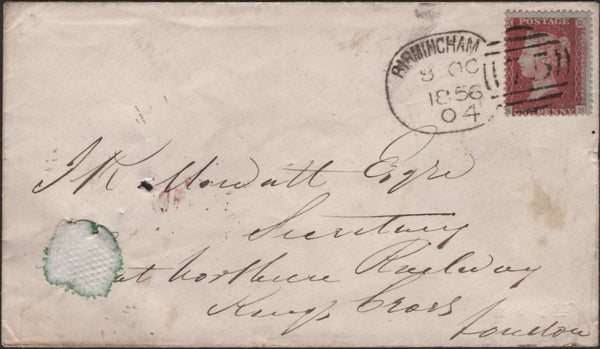 POSTAGE
ONE PENNY
BIRMINGHAM
8 OC
1856
04
J R Mowatt Esqre
Secretary
at Northern Railway
Kings Cross
London